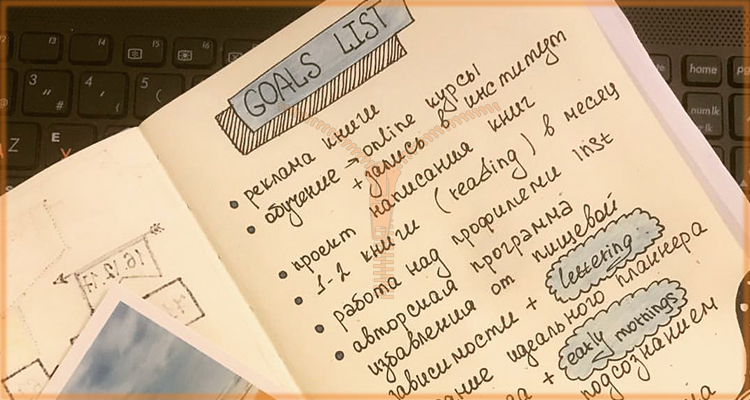 GOALS LIST
реклама книги
обучение → online курсы
+ запись в институт
проект написания книг
1-2 книги (reading) в месяц
работа над профилеми inst
авторская программа
избавления от пищевой
зависимости + lettering
идеального планнера
+ early mornings
подсознанием
16.12.17
3 " #
4
5 (
E
Z
F3
F4
F5
F6
home
pg
num lk